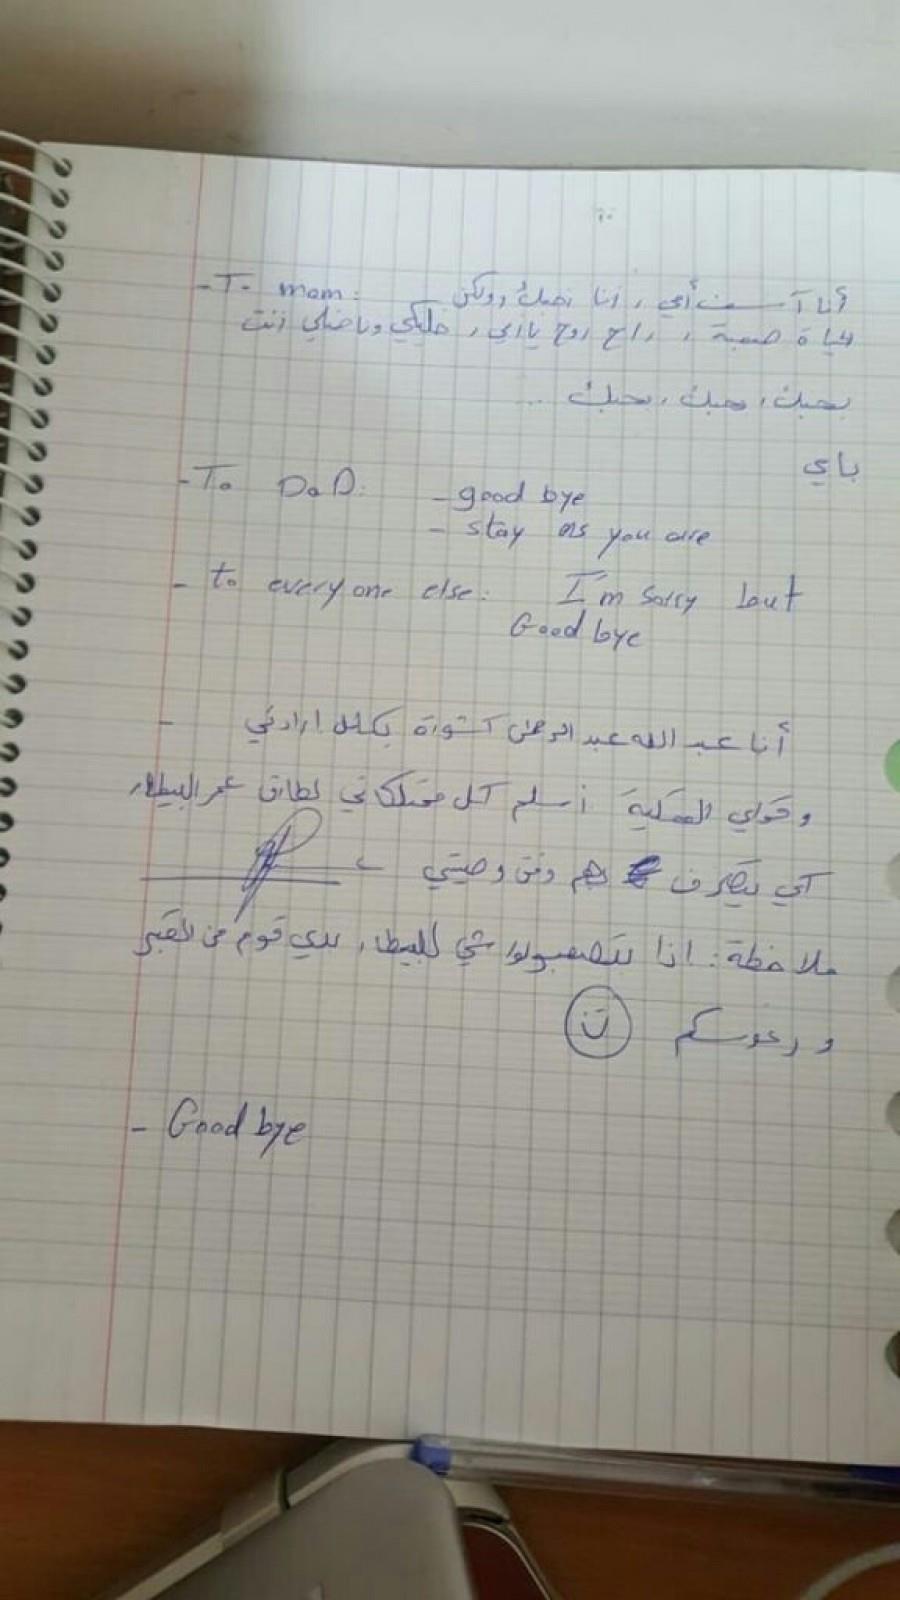 - To mom: أنا آسف أمي، أنا بحبك، ولكن
الحياة صعبة، راح روح يا امي، خليكي وناضلي انت
بحبك، بحبك، بحبك ...
باي
- To DaD: - good bye
- stay as you are
- to everyone else: I'm sorry but
Good bye
- أنا عبد الله عبد الرحمن بكامل ارادتي
وقواي العقلية أسلم كل ممتلكاتي لطارق عمر البيطار
كي يتصرف بهم وفق وصيتي
ملاحظة: اذا شي للبيطار، بدي قوم من القبر
و رعوسكم
- Good bye